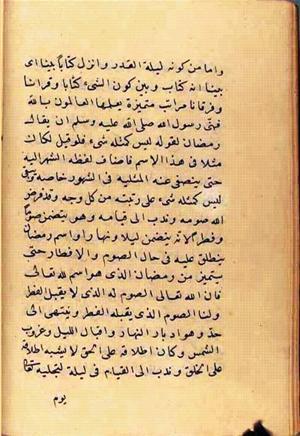 واما من كونه ليلة القدر وانزل كتابا بينا اى
بينا انه كتاب وبين كون الشىء كتابا وقرانا
وفرقانا مراتب متميزة يعلمها العالمون بالله
رسول الله صلى الله عليه وسلم ان يقال
رمضان لقوله ليس كمثله شىء فلو قيل لكان
مثلا فى هذا الاسم فاضاف لفظه الشهر اليه
حتى ينتفى عنه المثلية فى الشهور خاصة
ليس كمثله شىء على رتبته من كل وجه وقد فرض
الله صومه وندب الى قيامه وهو يتضمن صوما
وفطرا لانه يتضمن ليلا ونهارا واسم رمضان
ينطلق عليه فى حال الصوم والافطار حتى
يتميز من رمضان الذى هو اسم لله تعالى
فان الله تعالى الصوم له الذى لا يقبل الفطر
ولنا الصوم الذى يقبله الفطر وينتهى الى
حد وهو ادبار النهار واقبال الليل وغروب
الشمس وكان اطلاقه على الحق لا يشبه اطلاقه
على الخلق وندب الى القيام فى ليلة لتجليه تعالى
يوم